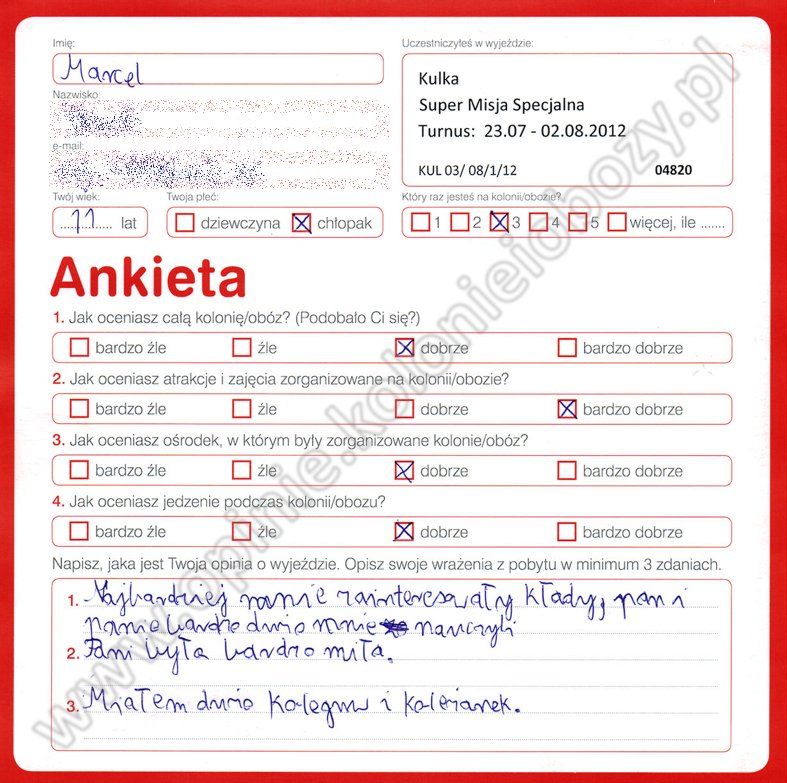 Imię:
Marcel
Nazwisko:
e-mail:
Twój wiek:
11 lat
Twoja płeć:
dziewczyna chłopak
Uczestniczyłeś w wyjeździe:
Kulka
Super Misja Specjalna
Turnus: 23.07 - 02.08.2012
KUL 03/ 08/1/12 04820
Który raz jesteś na kolonii/obozie?
1 2 3 4 5 więcej, ile .......
Ankieta
1. Jak oceniasz całą kolonię/obóz? (Podobało Ci się?)
bardzo źle źle dobrze bardzo dobrze
2. Jak oceniasz atrakcje i zajęcia zorganizowane na kolonii/obozie?
bardzo źle źle dobrze bardzo dobrze
3. Jak oceniasz ośrodek, w którym były zorganizowane kolonie/obóz?
bardzo źle źle dobrze bardzo dobrze
4. Jak oceniasz jedzenie podczas kolonii/obozu?
bardzo źle źle dobrze bardzo dobrze
Napisz, jaka jest Twoja opinia o wyjeździe. Opisz swoje wrażenia z pobytu w minimum 3 zdaniach.
1. Najbardziej mnie zainteresowały kłady, pan i
panie bardzo dużo mnie nauczyli
2. Pani była bardzo miła.
3. Miałem dużo kolegów i koleżanek.
www.opinie.kolonieiobozy.pl